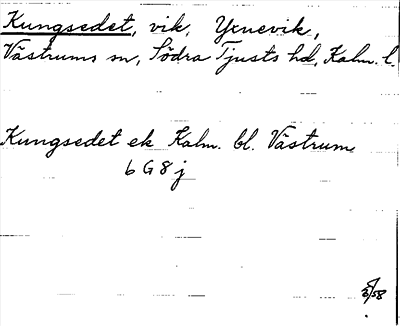 Kungsedet, vik, Yxnevik,
Västrums sn, Södra Tjusts hd, Kalm. l.
Kungsedet ek Kalm. bl. Västrum
6 G 8 j